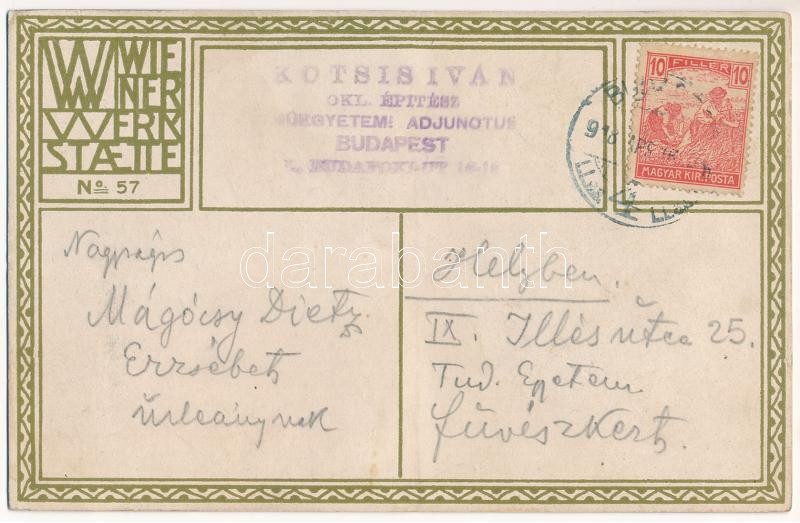 WIE
NER
WERK
STAETTE
No. 57
KOTSIS IVÁN
OKL. ÉPITÉSZ
MŰEGYETEMI ADJUNCTUS
BUDAPEST
10 FILLER 10
MAGYAR KIR. POSTA
Nagyságos
Mágócsy Dietz
Erzsébet
úrleánynak
Helyben.
IX. Illés útca 25.
Tud. Egyetem
füvészkert.
darabanth